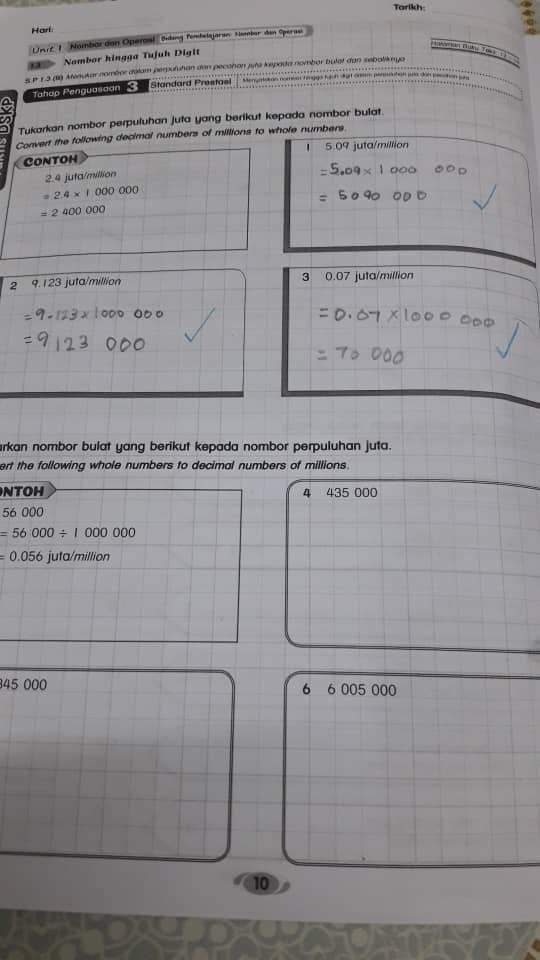 Hari:
Tarikh:
Unit 1 Nombor dan Operasi Bidang Pembelajaran: Nombor dan Operasi
Halaman Buku Teks: 12 –
1.3 Nombor hingga Tujuh Digit
S.P 1.3 (ii) Menukar nombor dalam perpuluhan dan pecahan juta kepada nombor bulat dan sebaliknya
Tahap Penguasaan 3 Standard Prestasi
DSKP
Tukarkan nombor perpuluhan juta yang berikut kepada nombor bulat.
Convert the following decimal numbers of millions to whole numbers.
CONTOH
2.4 juta/million
= 2.4 × 1 000 000
= 2 400 000
1 5.09 juta/million
= 5.09 × 1 000 000
= 5090 000
2 9.123 juta/million
= 9.123 × 1000 000
= 9123 000
3 0.07 juta/million
= 0.07 × 1000 000
= 70 000
arkan nombor bulat yang berikut kepada nombor perpuluhan juta.
ert the following whole numbers to decimal numbers of millions.
ONTOH
56 000
= 56 000 ÷ 1 000 000
= 0.056 juta/million
4 435 000
345 000
6 6 005 000
10